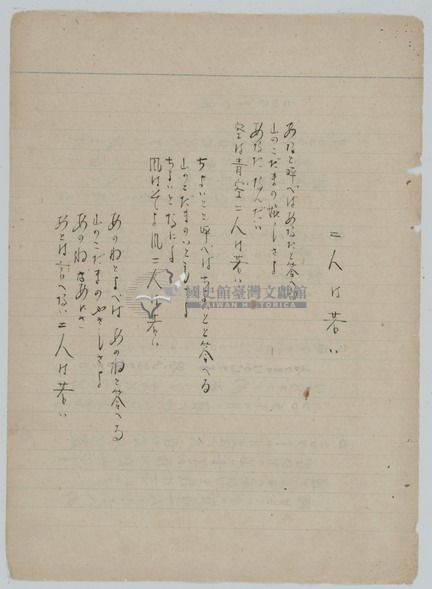 二人は若い
あなたと呼べばあなたと答へる
山のこだまの嬉しさよ
あなた なんだい
空は青空二人は若い
ちょいとと呼べばちょいとと答へる
山のこだまのいとしさよ
ちょいと なによ
風はそよ風 二人は若い
あのねとよべば あのねと答へる
山のこだまのやさしさよ
あのね なあにさ
あとは言へない 二人は若い
國史館臺灣文獻館
TAIWAN HISTORICA